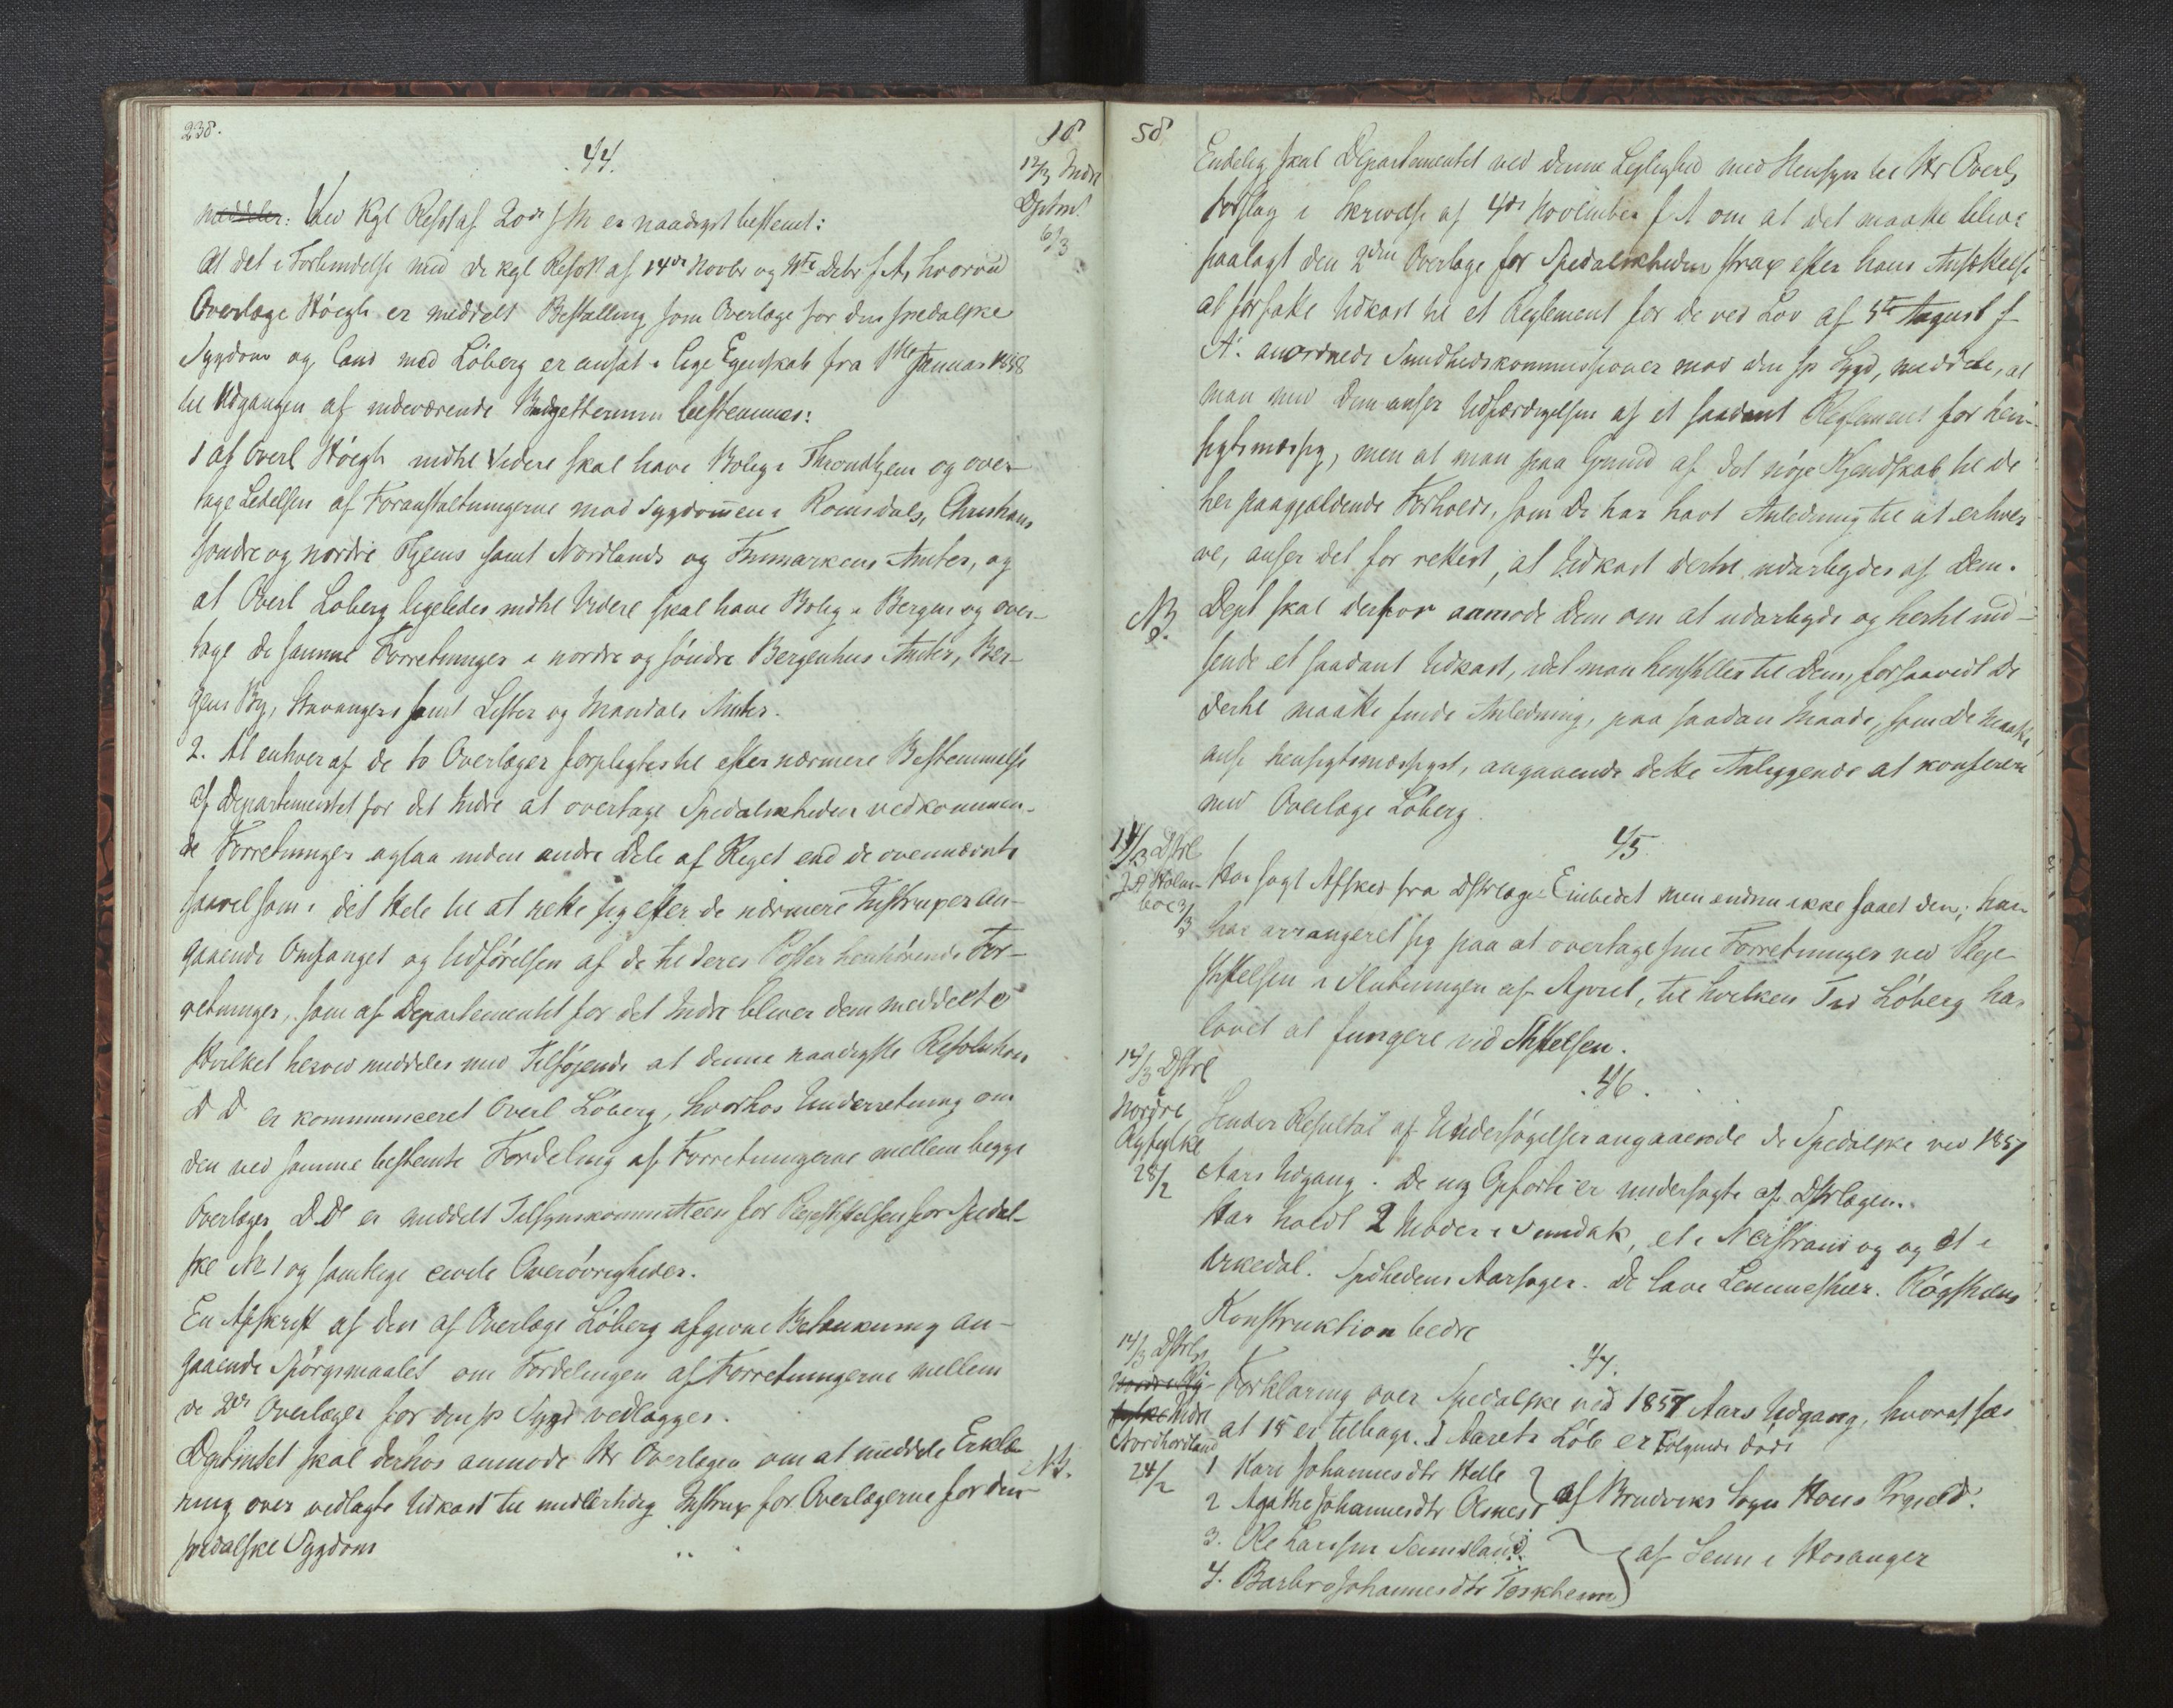 238.
18
44.
12/3 Indre
Dptmt
6/3
meddeler: Ved Kgl Resol af 20de f M er naadigst bestemt:
At det i Forbindelse med de kgl Resoll af 14de Novbr og Debr f. A, hvorved
Overlæge Höegh er meddelt Bestalling som Overlæge for den spedalske
Sygdom og Cand med Löberg er ansat i lige Egenskab fra 1ste Januar 1858
til Udgangen af indeværende Budgettermin bestemmes:
1 at Overl Höegh indtil Videre skal have Bolig i Throndhjem og over-
tage Ledelsen af Foranstaltningerne mod Sygdommen i Romsdals, Christians
söndre og nordre Thjems samt Nordlands og Finmarkens Amter, og
at Overl Löberg ligeledes indtil Videre skal have Bolig i Bergen og over-
tage de samme Forretninger i nordre og söndre Bergenhus Amter, Ber-
gens By, Stavangers samt Lister og Mandals Amter.
2. At enhver af de to Overlæger forpligtes til efter nærmere Bestemmelse
af Departementet for det Indre at overtage Spedalskheden vedkommen-
de Forretninger ogsaa inden andre Dele af Riget end de ovennævnte
saavelsom i det Hele til at rette sig efter de nærmere Instruxer an-
gaaende Omfanget og Udförelsen af de til deres Poster henhörende For-
retninger, som af Departementet for det Indre bliver dem meddelte
Hvilket herved meddeles med Tilföjende at denne naadigste Resolution
D D er kommuniceret Overl Löberg, hvorhos Underretning om
den ved samme bestemte Fordeling af Forretningerne mellem begge
Overlæger D.D. er meddelt Tilsynskommitteen for Plejestiftelsen for Spedal-
ske No 1 og samtlige civile Overövrigheder.
En Afskrift af den af Overlæge Löberg afgivne Betænkning an-
gaaende Spörgsmaalet om Fordelingen af Forretningerne mellem
de 2de Overlæger for den sp Sygd vedlægges.
Dptmtet skal derhos anmode Hr Overlægen om at meddele Erklæ
NB.
ring over vedlagte Udkast til midlertidig Instrux for Overlægerne for den
spedalske Sygdom
58
Endelig skal Departementet ved denne Leylighed med Hensyn til Hr Overl,
Forslag i Skrivelse af 4de November f A om at det maatte blive
paalagt den 2den Overlæge for Spedalskheden strax efter hans Ansættelse
at forfatte Udkast til et Reglement for de ved Lov af August f
A. anordnede Sundhedskommissioner mod den sp Sygd, meddele, at
man med Dem anser Udfærdigelsen af et saadant Reglement for hen-
sigtsmæssig, men at man paa Grund af det nöje Kjendskab til de
her paagjældende Forholde, som De har havt Anledning til at erhver
ve, anser det for rettest, at Udkast dertil udarbeydes af Dem.
NB
Dept skal derfor anmode Dem om at udarbeyde og hertil ind-
sende et saadant Udkast, idet man henstiller til Dem, forsaavidt De
dertil maatte finde Anledning, paa saadan Maade, som De maatte
anse hensigtsmæssigst, angaaende dette Anliggende at konferere
med Overlæge Löberg.
45.
14/3 Dstrl
J A Holm-
boe 3/3
Har sögt Afsked fra Dstrlæge-Embedet men endnu ikke faaet den; han
har arrangeret sig paa at overtage sine Forretninger ved Pleje-
stiftelsen i Slutningen af April, til hvilken Tid Löberg har
lovet at fungere ved Stiftelsen.
46.
14/3 Dstrl
i
Nordre
Ryfylke
28/2
Sender Resultat af Undersögelser angaaende de Spedalske ved 1857
Aars Udgang. De ny Opförte er undersögte af Dstrlægen.
Har holdt 2 Möder i , et i Nerstrand og og et i
Årkedal. Spdhedens Aarsager. De lave Lemmestuer. Rögstuens
Konstruktion bedre
47.
14/3 Dstrlg
Nordre Ry-
fylke Indre
Nordhordland
24/2
Forklaring over Spedalske ved 1857 Aars Udgang, hvoraf sees
at 15 er tilbage. I Aarets Löb er Fölgende döde
1 Kari Johannesdtr Helle
2 Agathe Johannesdtr } af Bruviks Sogn Hous Prgjeld.
3. Ole Larssen
4. Barbro Johannesdtr } af i Hosanger